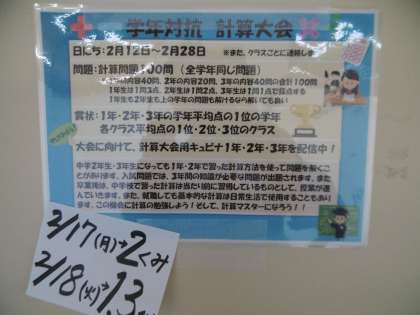 学年対抗 計算大会
日にち:2月12日~2月28日 ※また、クラスごとに連絡しま
問題:計算問題100問(全学年同じ問題)
1年の内容40問、2年の内容20問、3年の内容40問の合計100問
1年生は1問3点、2年生は1問2点、3年生は1問1点で採点する
1年生も2年生も上の学年の問題も解けるなら解いても良い
賞状:1年・2年・3年の学年平均点の1位の学年
各クラス平均点の1位・2位・3位のクラス
大会に向けて、計算大会用キュビナ1年・2年・3年を配信中!
中学2年生・3年生になっても1年・2年で習った計算方法を使って問題を解くこ
とがあります。入試問題では、3年間の知識が必要な問題が出題されます。また
卒業後は、中学校で習った計算は当たり前に習得しているものとして、授業が進
んでいきます。また、就職しても基本的な計算は日常生活で使用することもあり
ます。この機会に計算の勉強しよう!そして、計算マスターになろう!!
2/17(月)→2くみ
2/18(火)→1.3